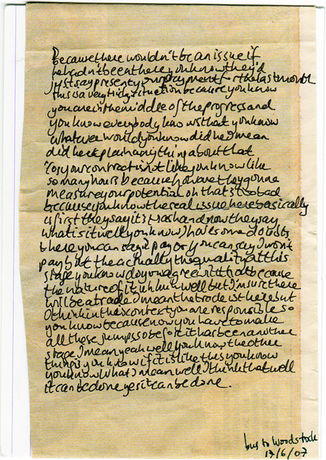 because there wouldn't be an issue if
he hadn't been there you know they'd
just say presently our payment for the last month
this is a very tricky situation because you know
you are in the middle of the progress and
you know everybody knows that you know
what we would you know did he I mean
did he explain anything about that
'cos your contract is not like you know like
so many hours because how are they gonna
measure your potential oh that's too bad
because you know the real issue here is basically
is first they say it's 4 as hard now the way
what is it well you know I have some doubts
where you can say I pay or you can say I won't
pay but the actually the quality at this
stage you know do you agree with that because
the nature of it uh huh well but I'm sure there
will be a trade I mean the trade is there is but
then in this context you are responsible so
you know because now you have to make
all these jumps so before it has been another
stage I mean yeah well you know the other
thing is you know if it is like this you know
you know what I mean well I think that well
it can be done yes it can be done.
bus to Woodstock
13/6/07